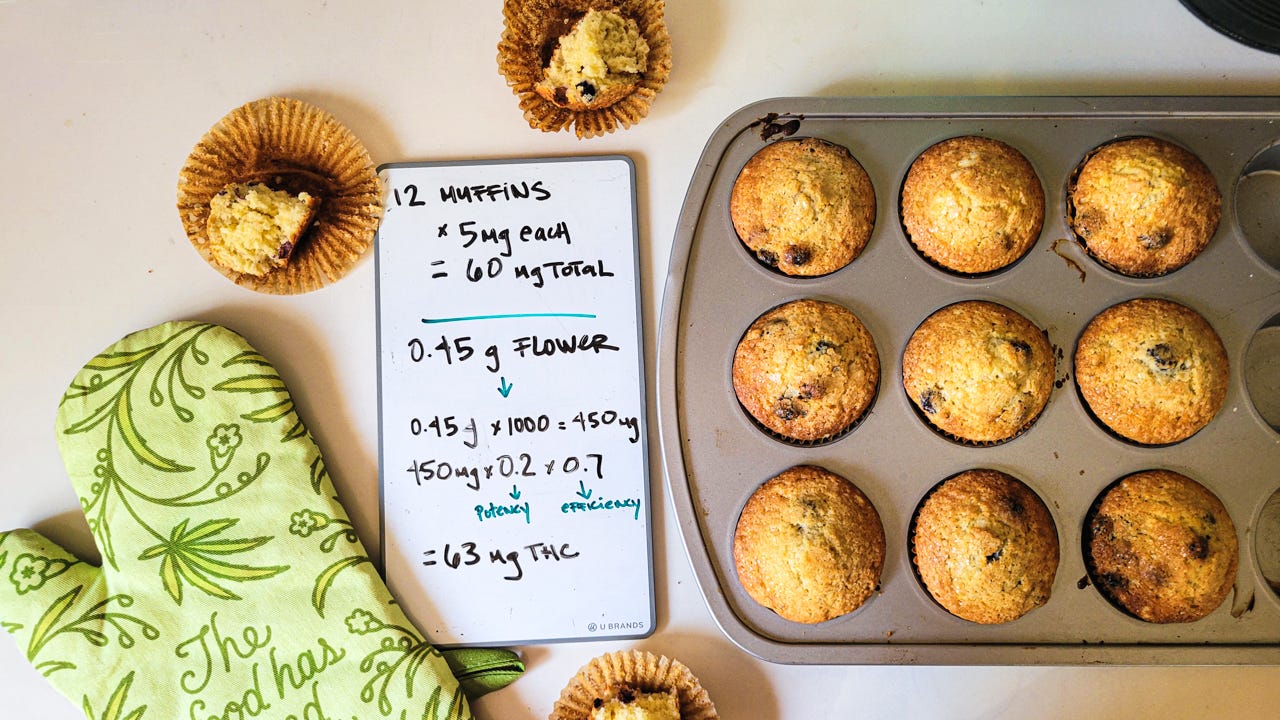 12 MUFFINS
x 5mg each
= 60 mg TOTAL
0.45 g FLOWER
0.45 g x 1000 = 450 mg
450mg x 0.2 x 0.7
Potency efficiency
= 63 mg THC
U BRANDS
The
food has